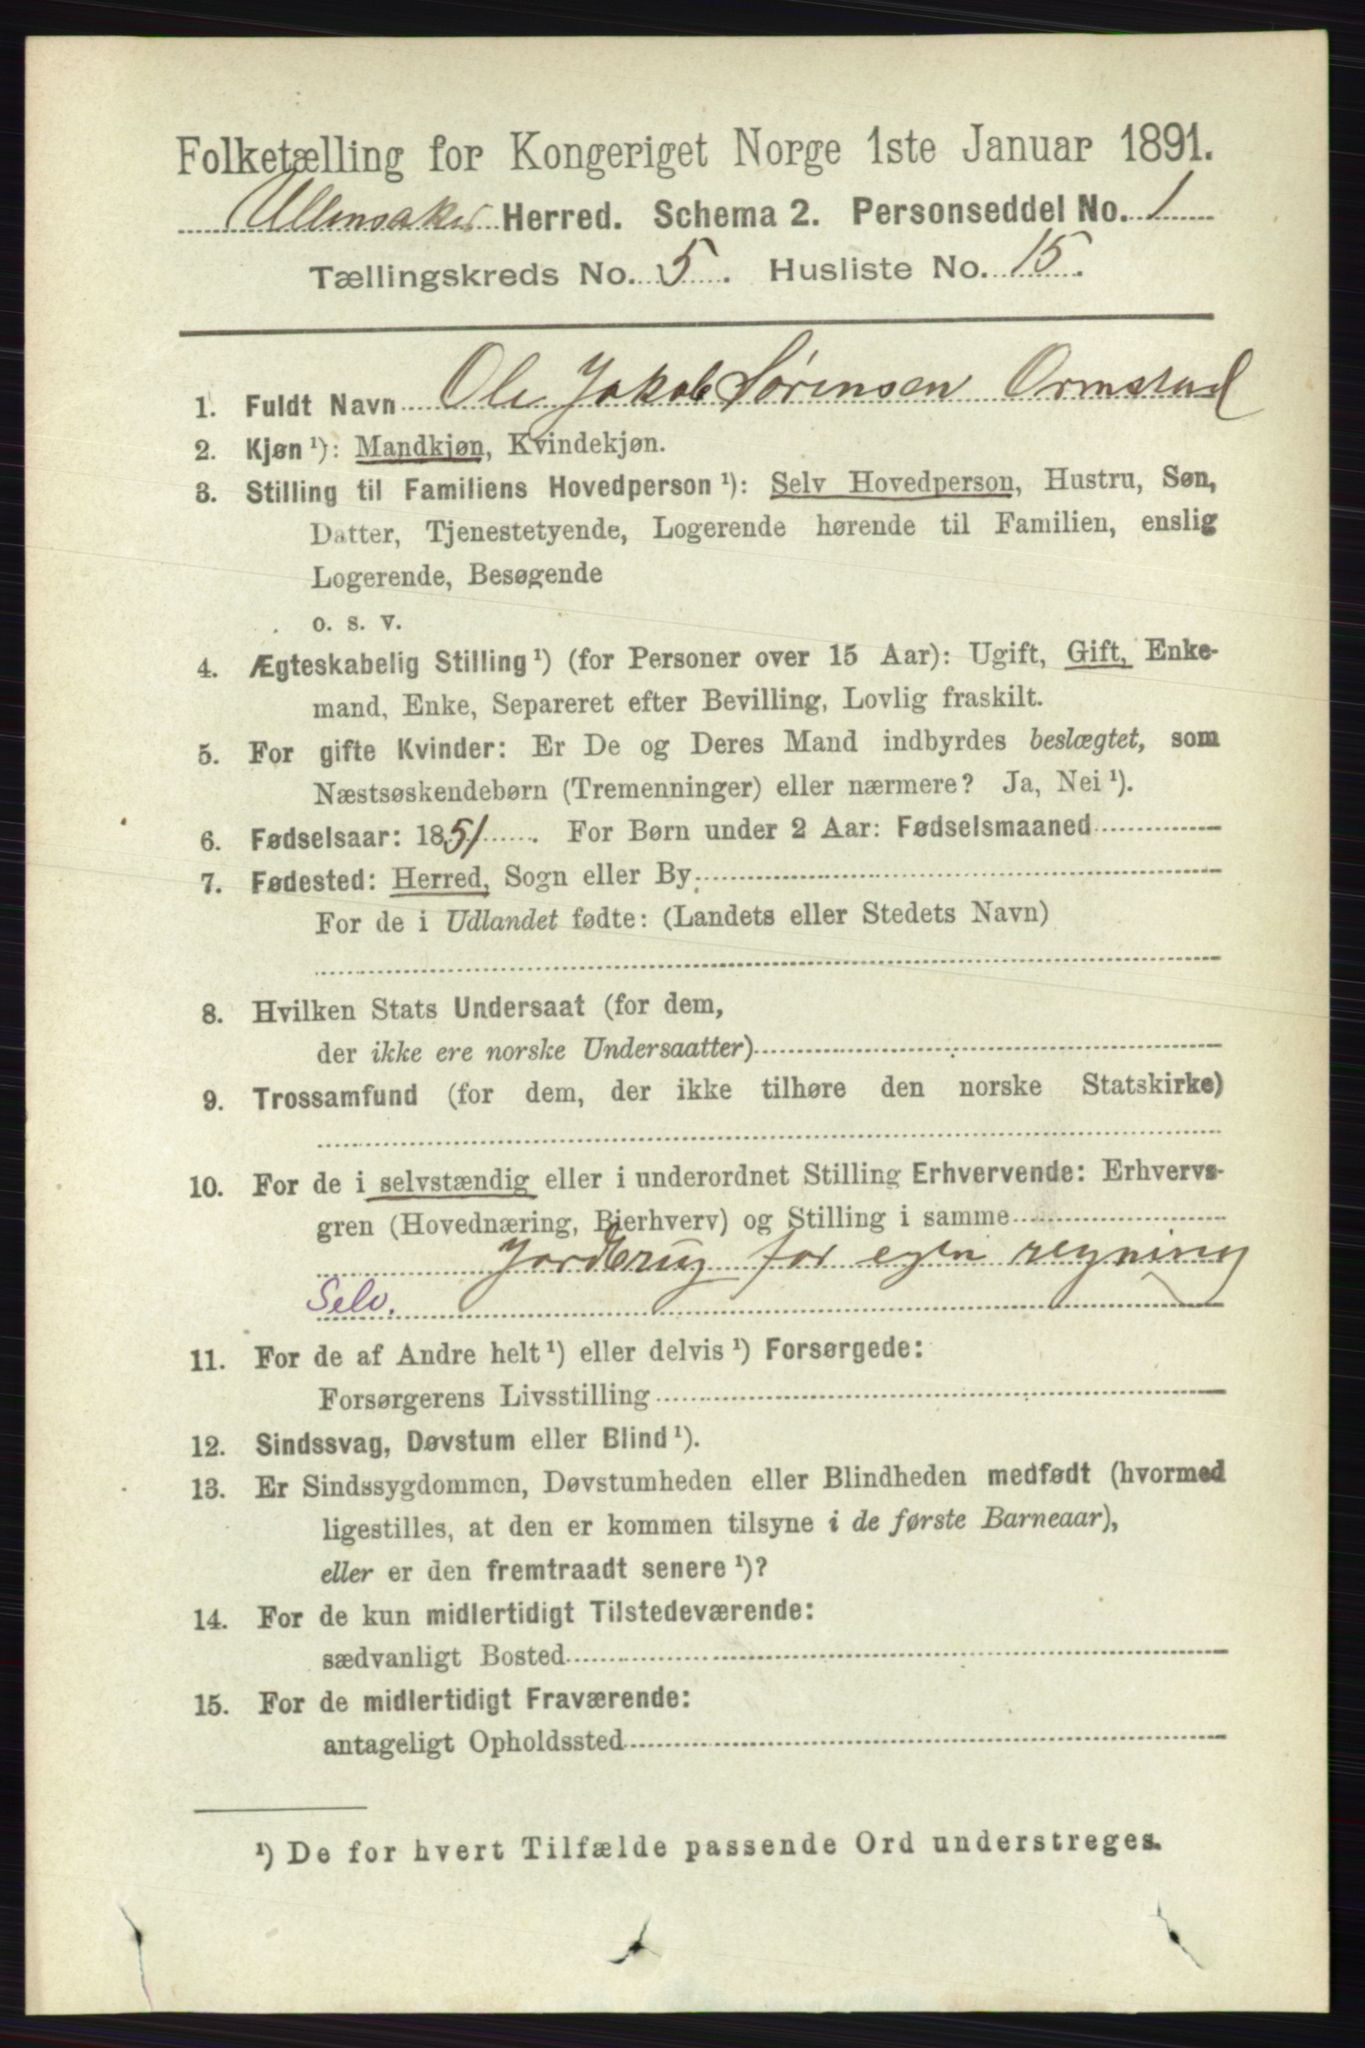 Folketælling for Kongeriget Norge 1ste Januar 1891.
Ullensaker Herred. Schema 2. Personseddel No. 1
Tællingskreds No. 5. Husliste No. 15.
1. Fuldt Navn Ole Jakob Sørensen Ormstad
2. Kjøn ¹): Mandkjøn, Kvindekjøn.
3. Stilling til Familiens Hovedperson ¹): Selv Hovedperson, Hustru, Søn,
Datter, Tjenestetyende, Logerende hørende til Familien, enslig
Logerende, Besøgende
o. s. v.
4. Ægteskabelig Stilling ¹) (for Personer over 15 Aar): Ugift, Gift, Enke-
mand, Enke, Separeret efter Bevilling, Lovlig fraskilt.
5. For gifte Kvinder: Er De og Deres Mand indbyrdes beslægtet, som
Næstsøskendebørn (Tremenninger) eller nærmere? Ja, Nei ¹).
6. Fødselsaar: 1851. For Børn under 2 Aar: Fødselsmaaned
7. Fødested: Herred, Sogn eller By
For de i Udlandet fødte: (Landets eller Stedets Navn)
8. Hvilken Stats Undersaat (for dem,
der ikke ere norske Undersaatter)
9. Trossamfund (for dem, der ikke tilhøre den norske Statskirke)
10. For de i selvstændig eller i underordnet Stilling Erhvervende: Erhvervs-
gren (Hovednæring, Bierhverv) og Stilling i samme
Jordbrug for egen regning
Selv.
11. For de af Andre helt ¹) eller delvis ¹) Forsørgede:
Forsørgerens Livsstilling
12. Sindssvag, Døvstum eller Blind ¹).
13. Er Sindssygdommen, Døvstumheden eller Blindheden medfødt (hvormed
ligestilles, at den er kommen tilsyne i de første Barneaar),
eller er den fremtraadt senere ¹)?
14. For de kun midlertidigt Tilstedeværende:
sædvanligt Bosted
15. For de midlertidigt Fraværende:
antageligt Opholdssted
¹) De for hvert Tilfælde passende Ord understreges.